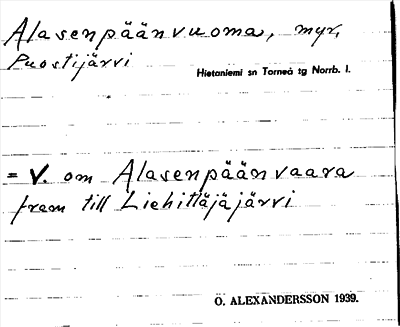 Alasenpäänvuoma, myr,
Puostijärvi
Hietaniemi sn Torneå tg Norrb. l.
= V. om Alasenpäänvaara
fram till Liehittäjäjärvi
O. ALEXANDERSSON 1939.